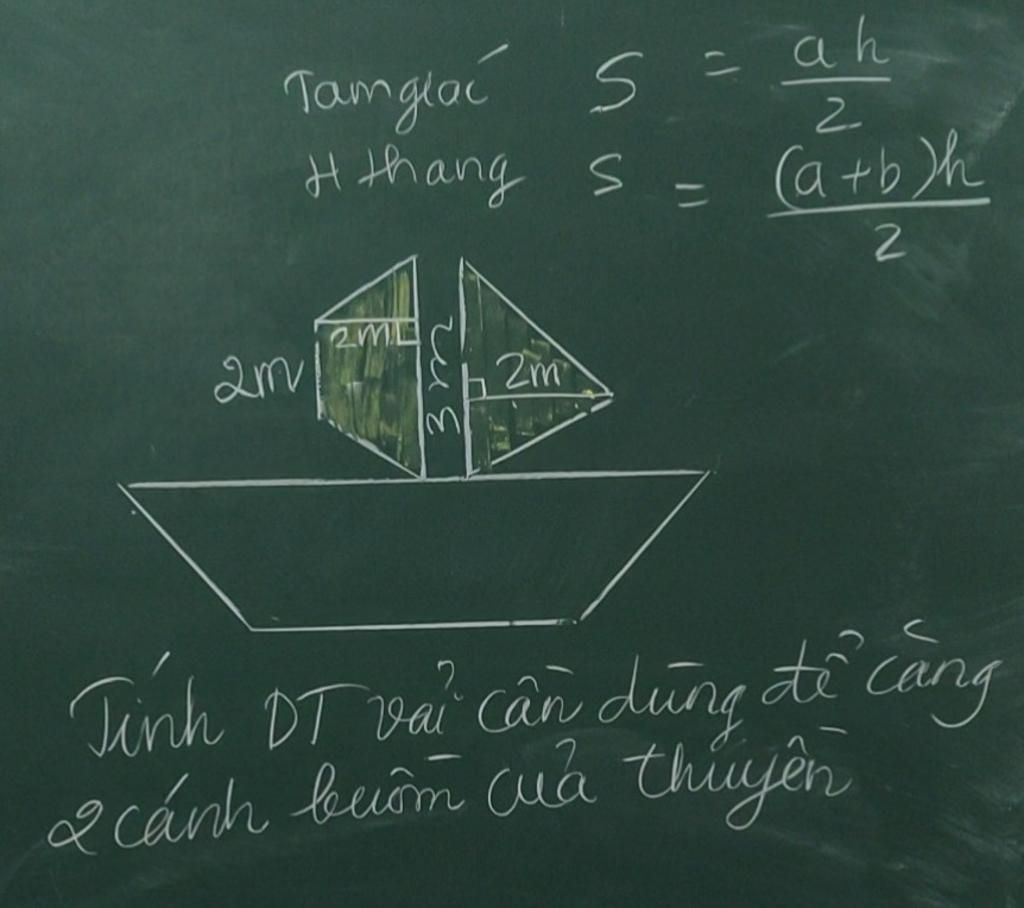 Tam giác S = ah/2
H thang S = (a+b)h/2
2m
2m
3m
2m
Tính DT vải cần dùng để căng
2 cánh buồm của thuyền